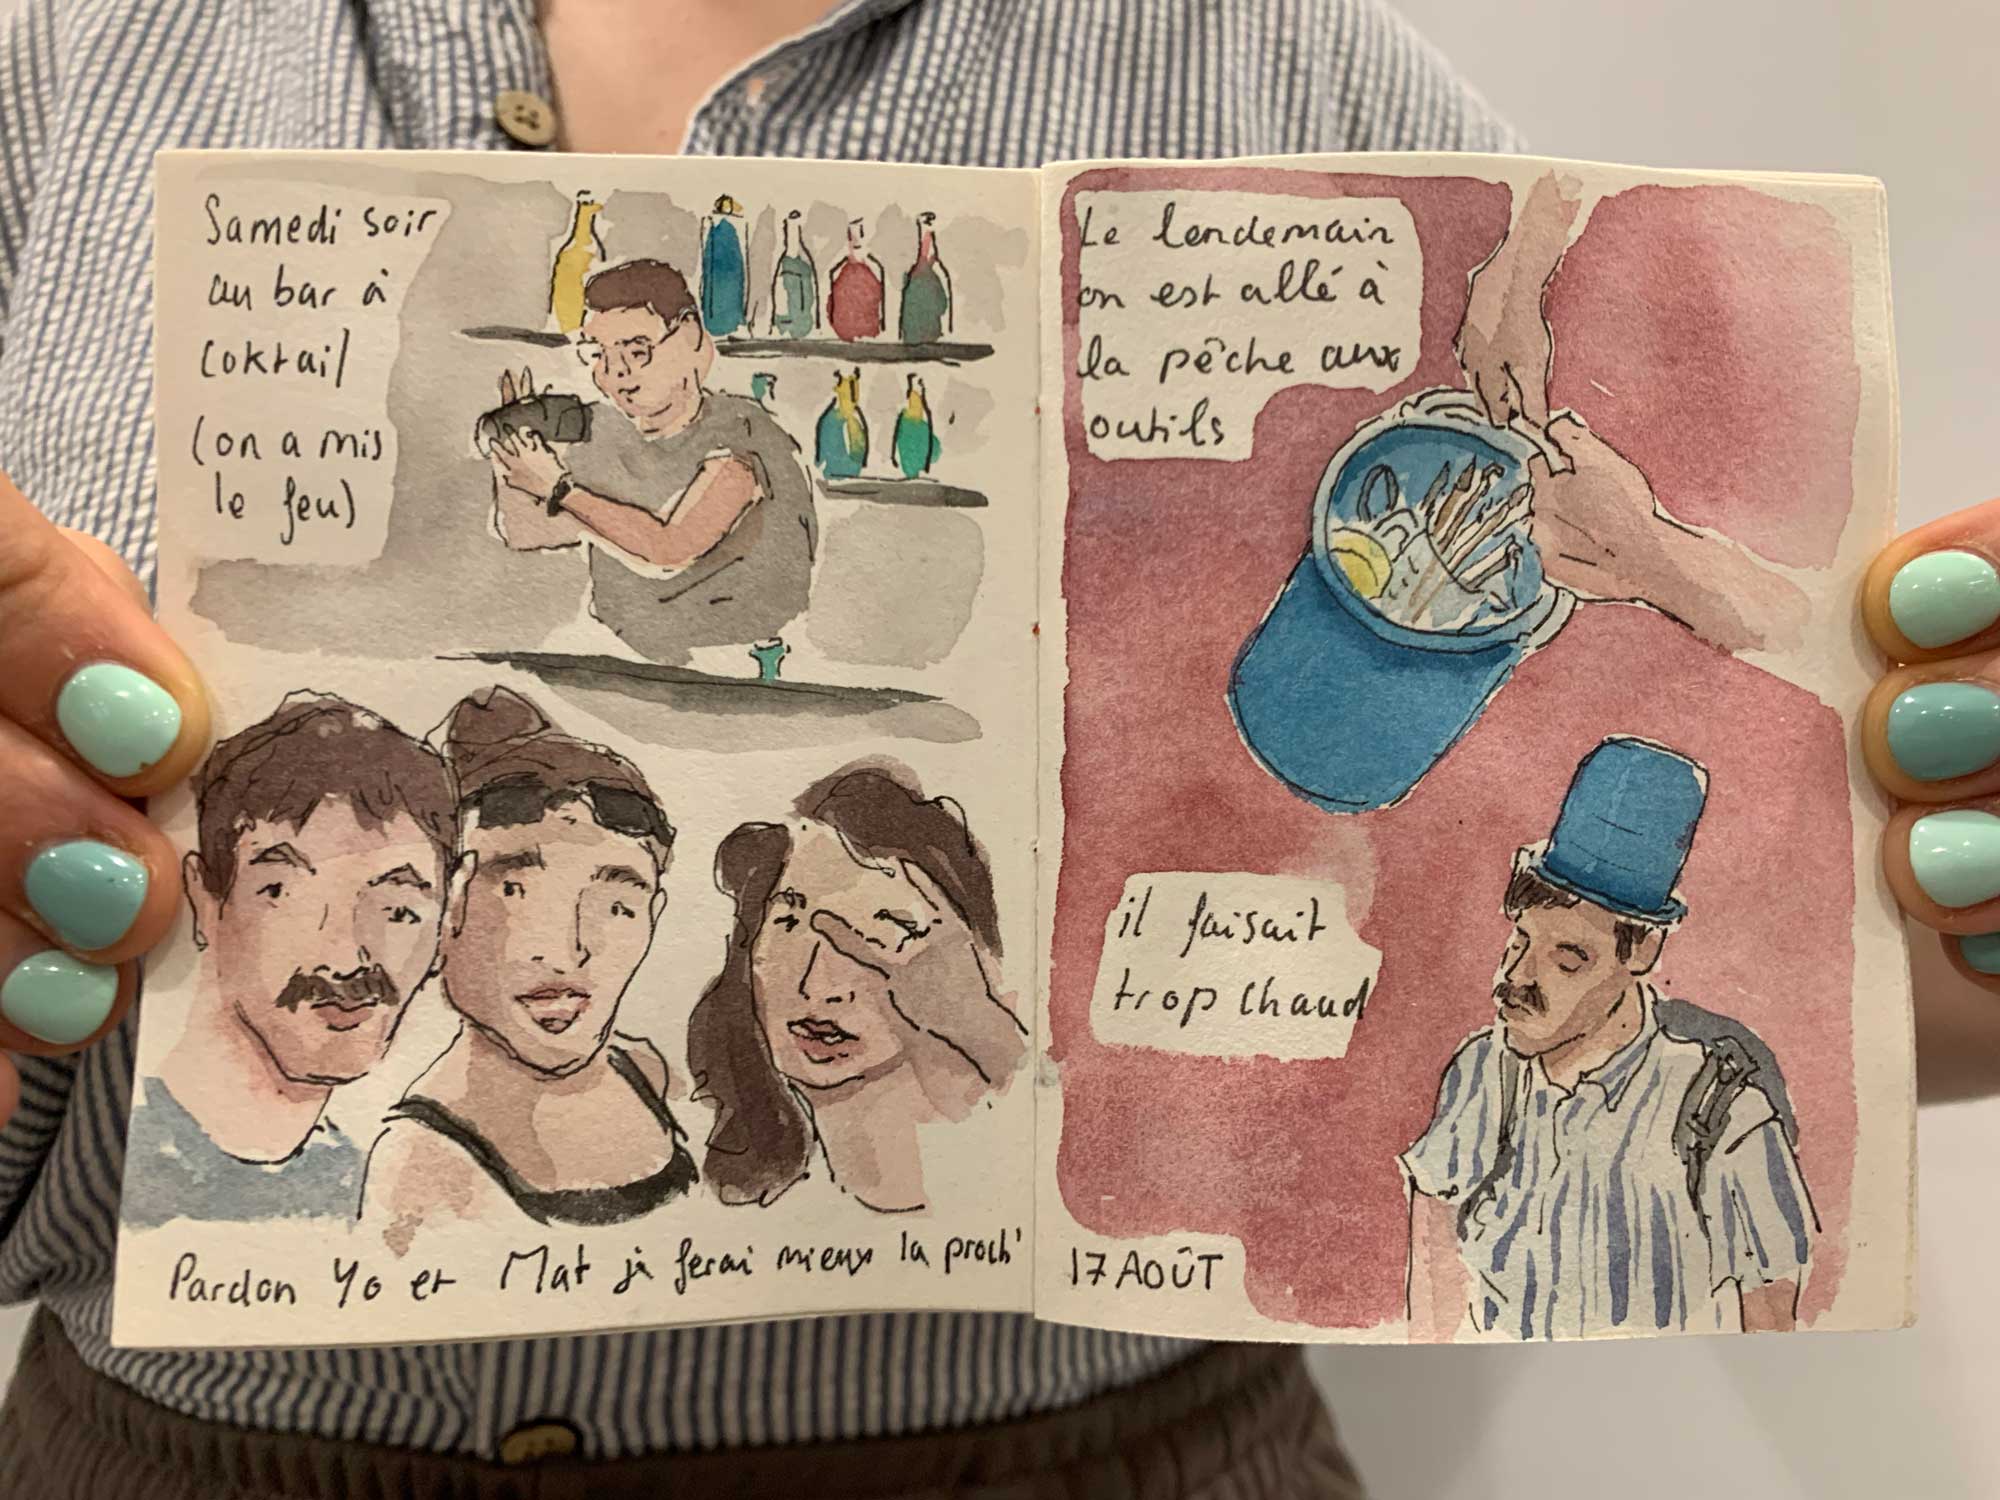 Samedi soir
au bar à
coktail
(on a mis
le feu)
Pardon Yo et Mat je ferai mieux la proch'
Le lendemain
on est allé à
la pêche aux
outils
il faisait
trop chaud
17 AOÛT